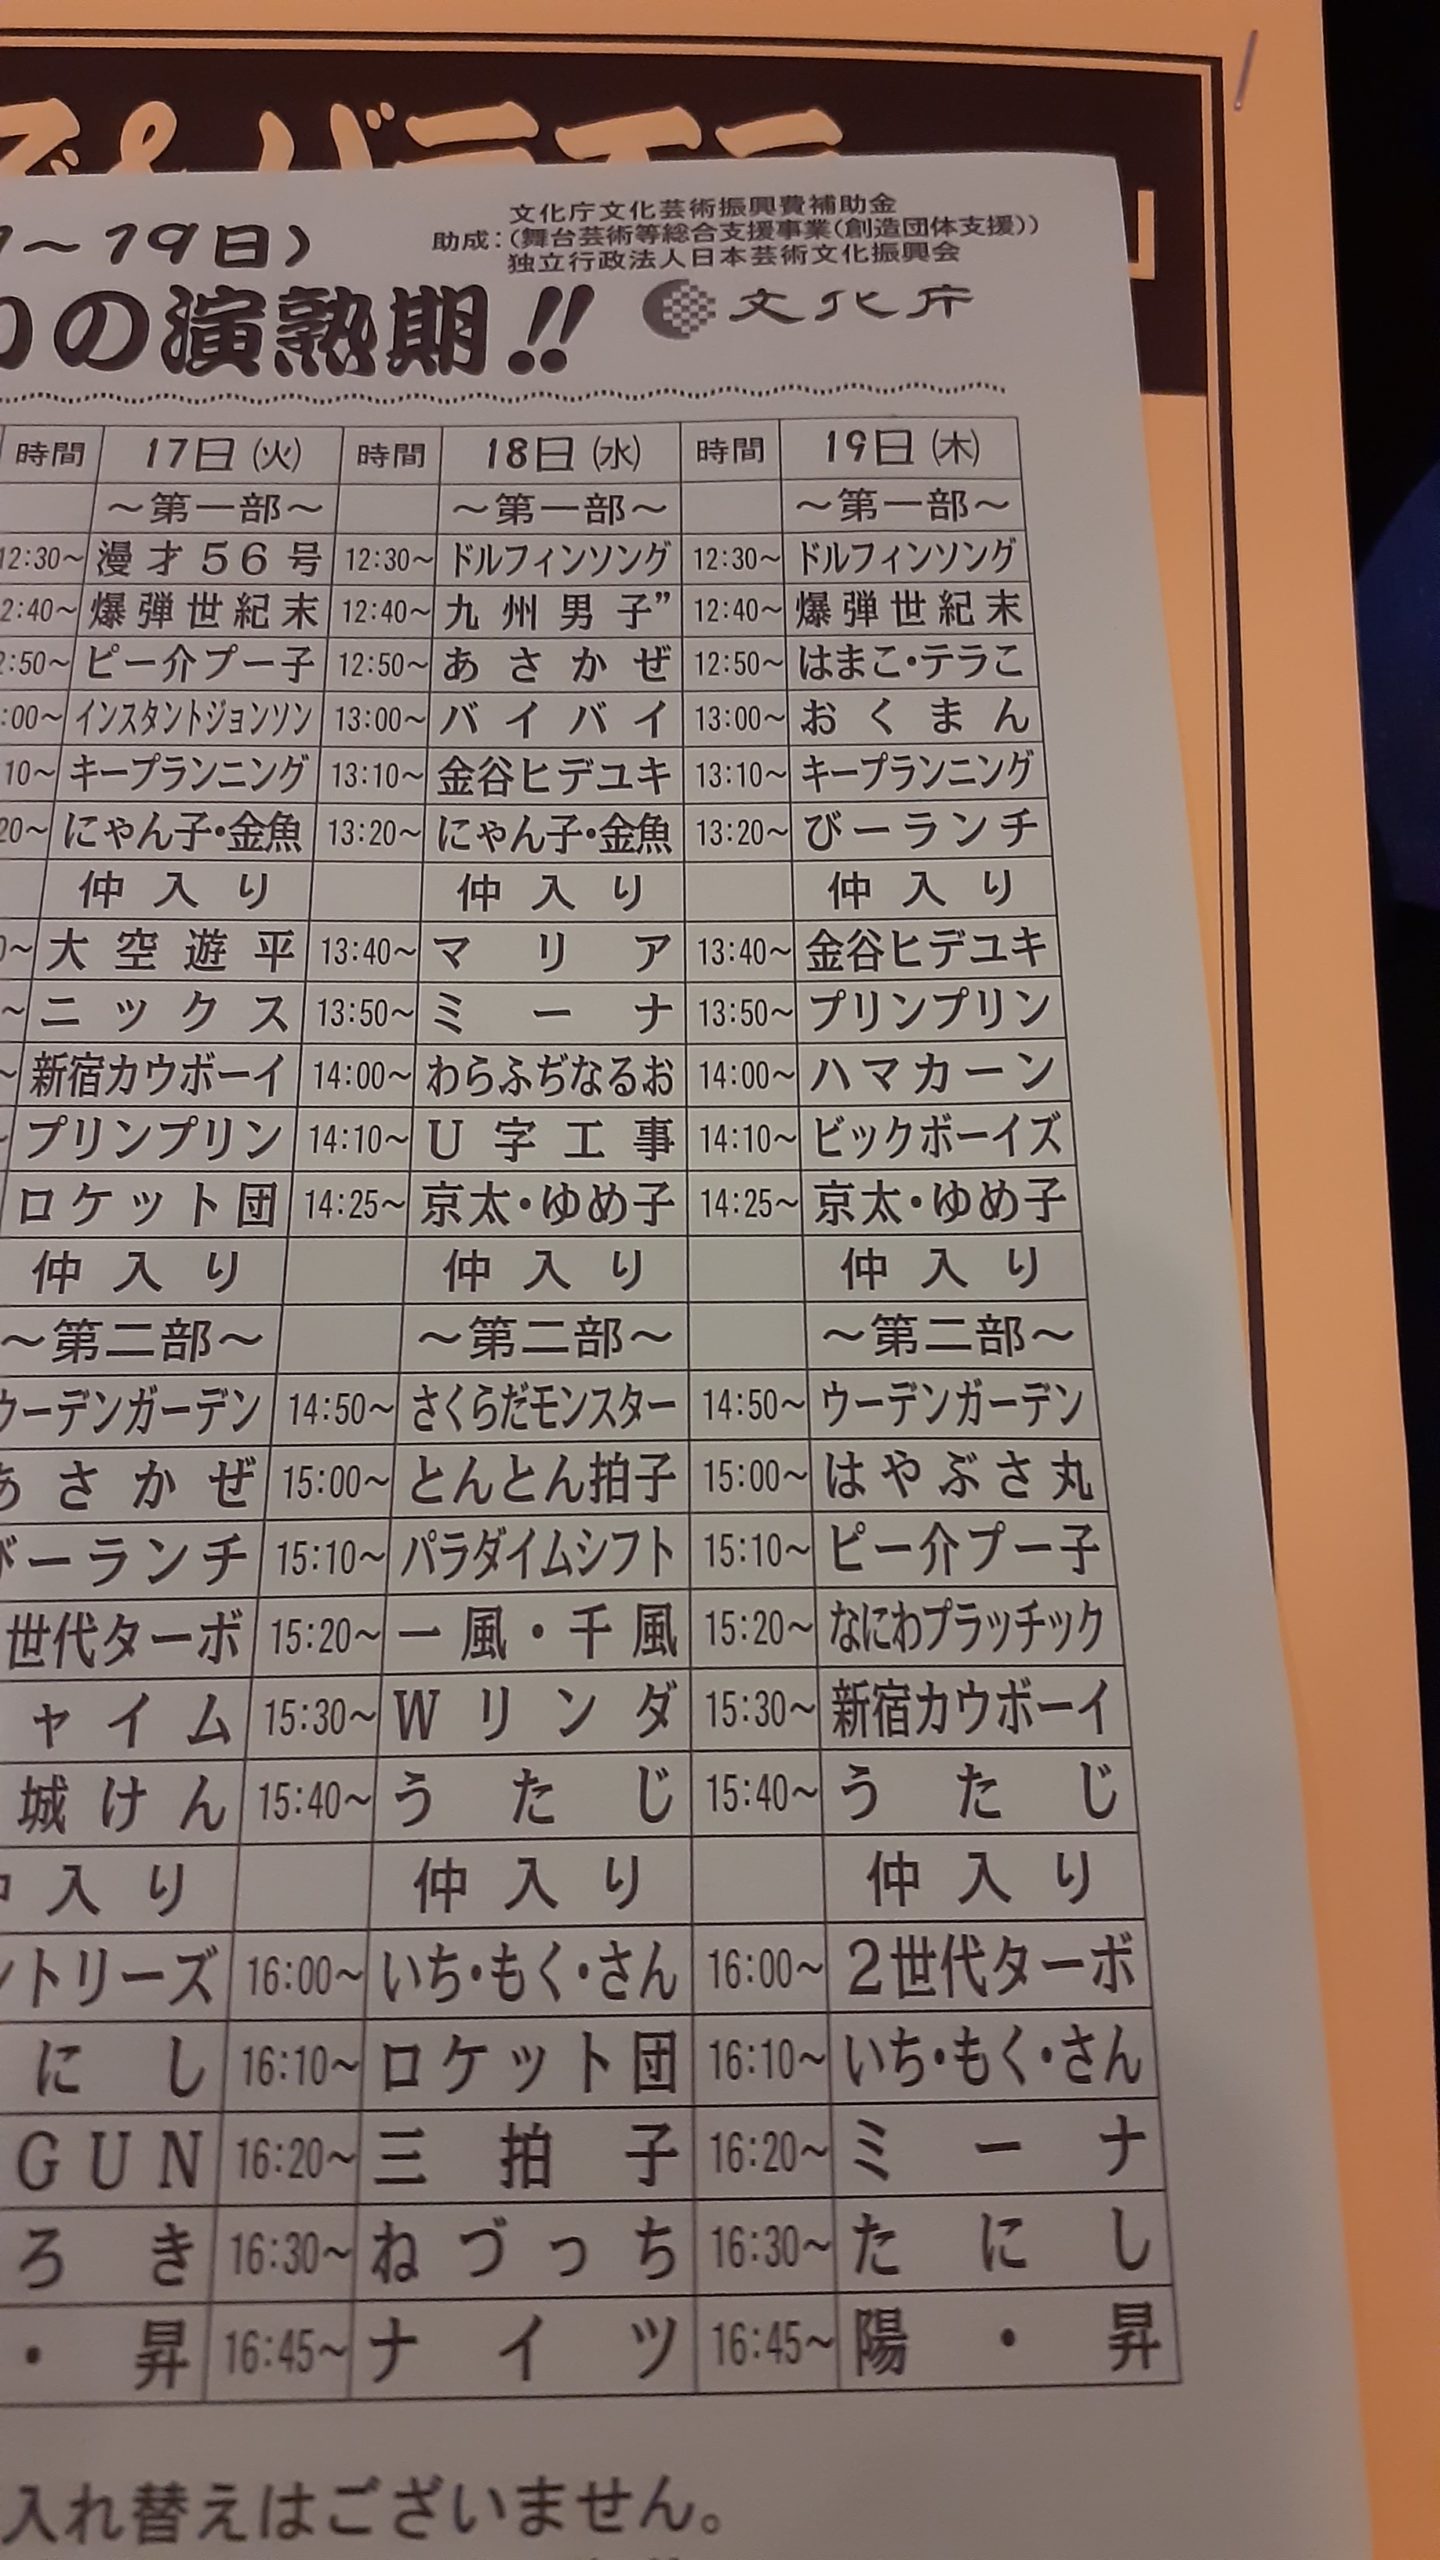 文化庁文化芸術振興費補助金
助成:(舞台芸術等総合支援事業(創造団体支援))
独立行政法人日本芸術文化振興会
～19日)
の演熟期!!
文化庁
時間 17日(火) 時間 18日(水) 時間 19日(木)
～第一部～ ～第一部～ ～第一部～
12:30～ 漫才56号 12:30～ ドルフィンソング 12:30～ ドルフィンソング
2:40～ 爆弾世紀末 12:40～ 九州男子” 12:40～ 爆弾世紀末
2:50～ ピー介プー子 12:50～ あさかぜ 12:50～ はまこ・テラこ
:00～ インスタントジョンソン 13:00～ バイバイ 13:00～ おくまん
10～ キープランニング 13:10～ 金谷ヒデユキ 13:10～ キープランニング
20～ にゃん子・金魚 13:20～ にゃん子・金魚 13:20～ びーランチ
仲入り 仲入り 仲入り
～ 大空遊平 13:40～ マリア 13:40～ 金谷ヒデユキ
～ ニックス 13:50～ ミーナ 13:50～ プリンプリン
～ 新宿カウボーイ 14:00～ わらふぢなるお 14:00～ ハマカーン
プリンプリン 14:10～ U字工事 14:10～ ビックボーイズ
ロケット団 14:25～ 京太・ゆめ子 14:25～ 京太・ゆめ子
仲入り 仲入り 仲入り
～第二部～ ～第二部～ ～第二部～
ウーデンガーデン 14:50～ さくらだモンスター 14:50～ ウーデンガーデン
あさかぜ 15:00～ とんとん拍子 15:00～ はやぶさ丸
びーランチ 15:10～ パラダイムシフト 15:10～ ピー介プー子
世代ターボ 15:20～ 一風・千風 15:20～ なにわプラッチック
ャイム 15:30～ Wリンダ 15:30～ 新宿カウボーイ
城けん 15:40～ うたじ 15:40～ うたじ
入り 仲入り 仲入り
ントリーズ 16:00～ いち・もく・さん 16:00～ 2世代ターボ
にし 16:10～ ロケット団 16:10～ いち・もく・さん
GUN 16:20～ 三拍子 16:20～ ミーナ
ろき 16:30～ ねづっち 16:30～ たにし
・昇 16:45～ ナイツ 16:45～ 陽・昇
入れ替えはございません。